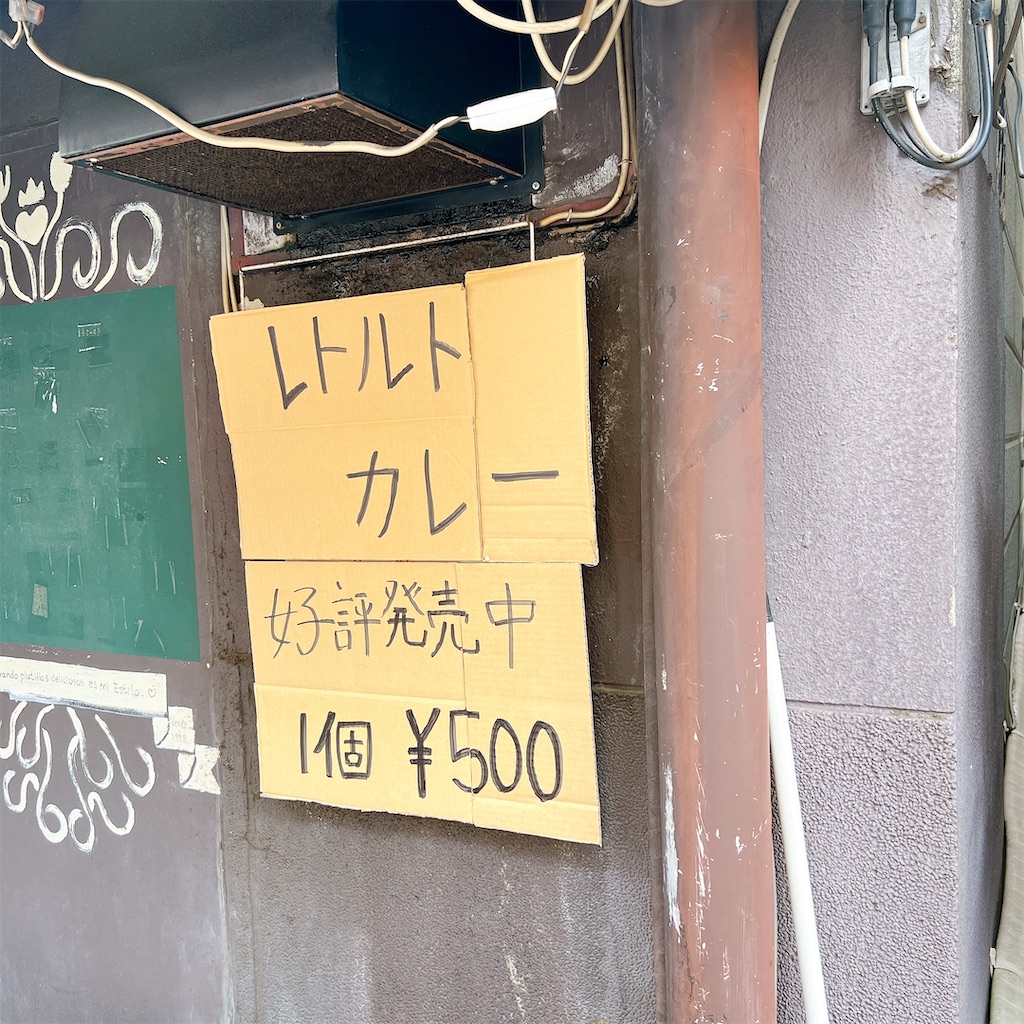 レトルト
カレー
好評発売中
1個 ¥500
platillos deliciosos es mi Estilo. ♡